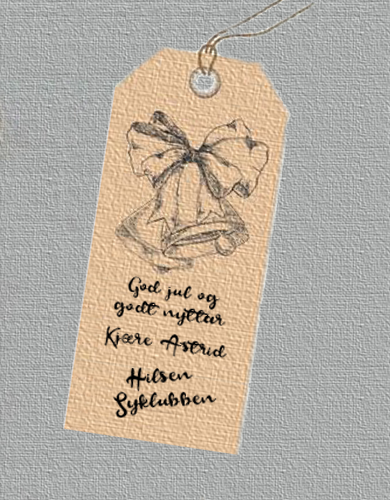 God jul og
godt nyttår
Kjære Astrid
Hilsen
Syklubben